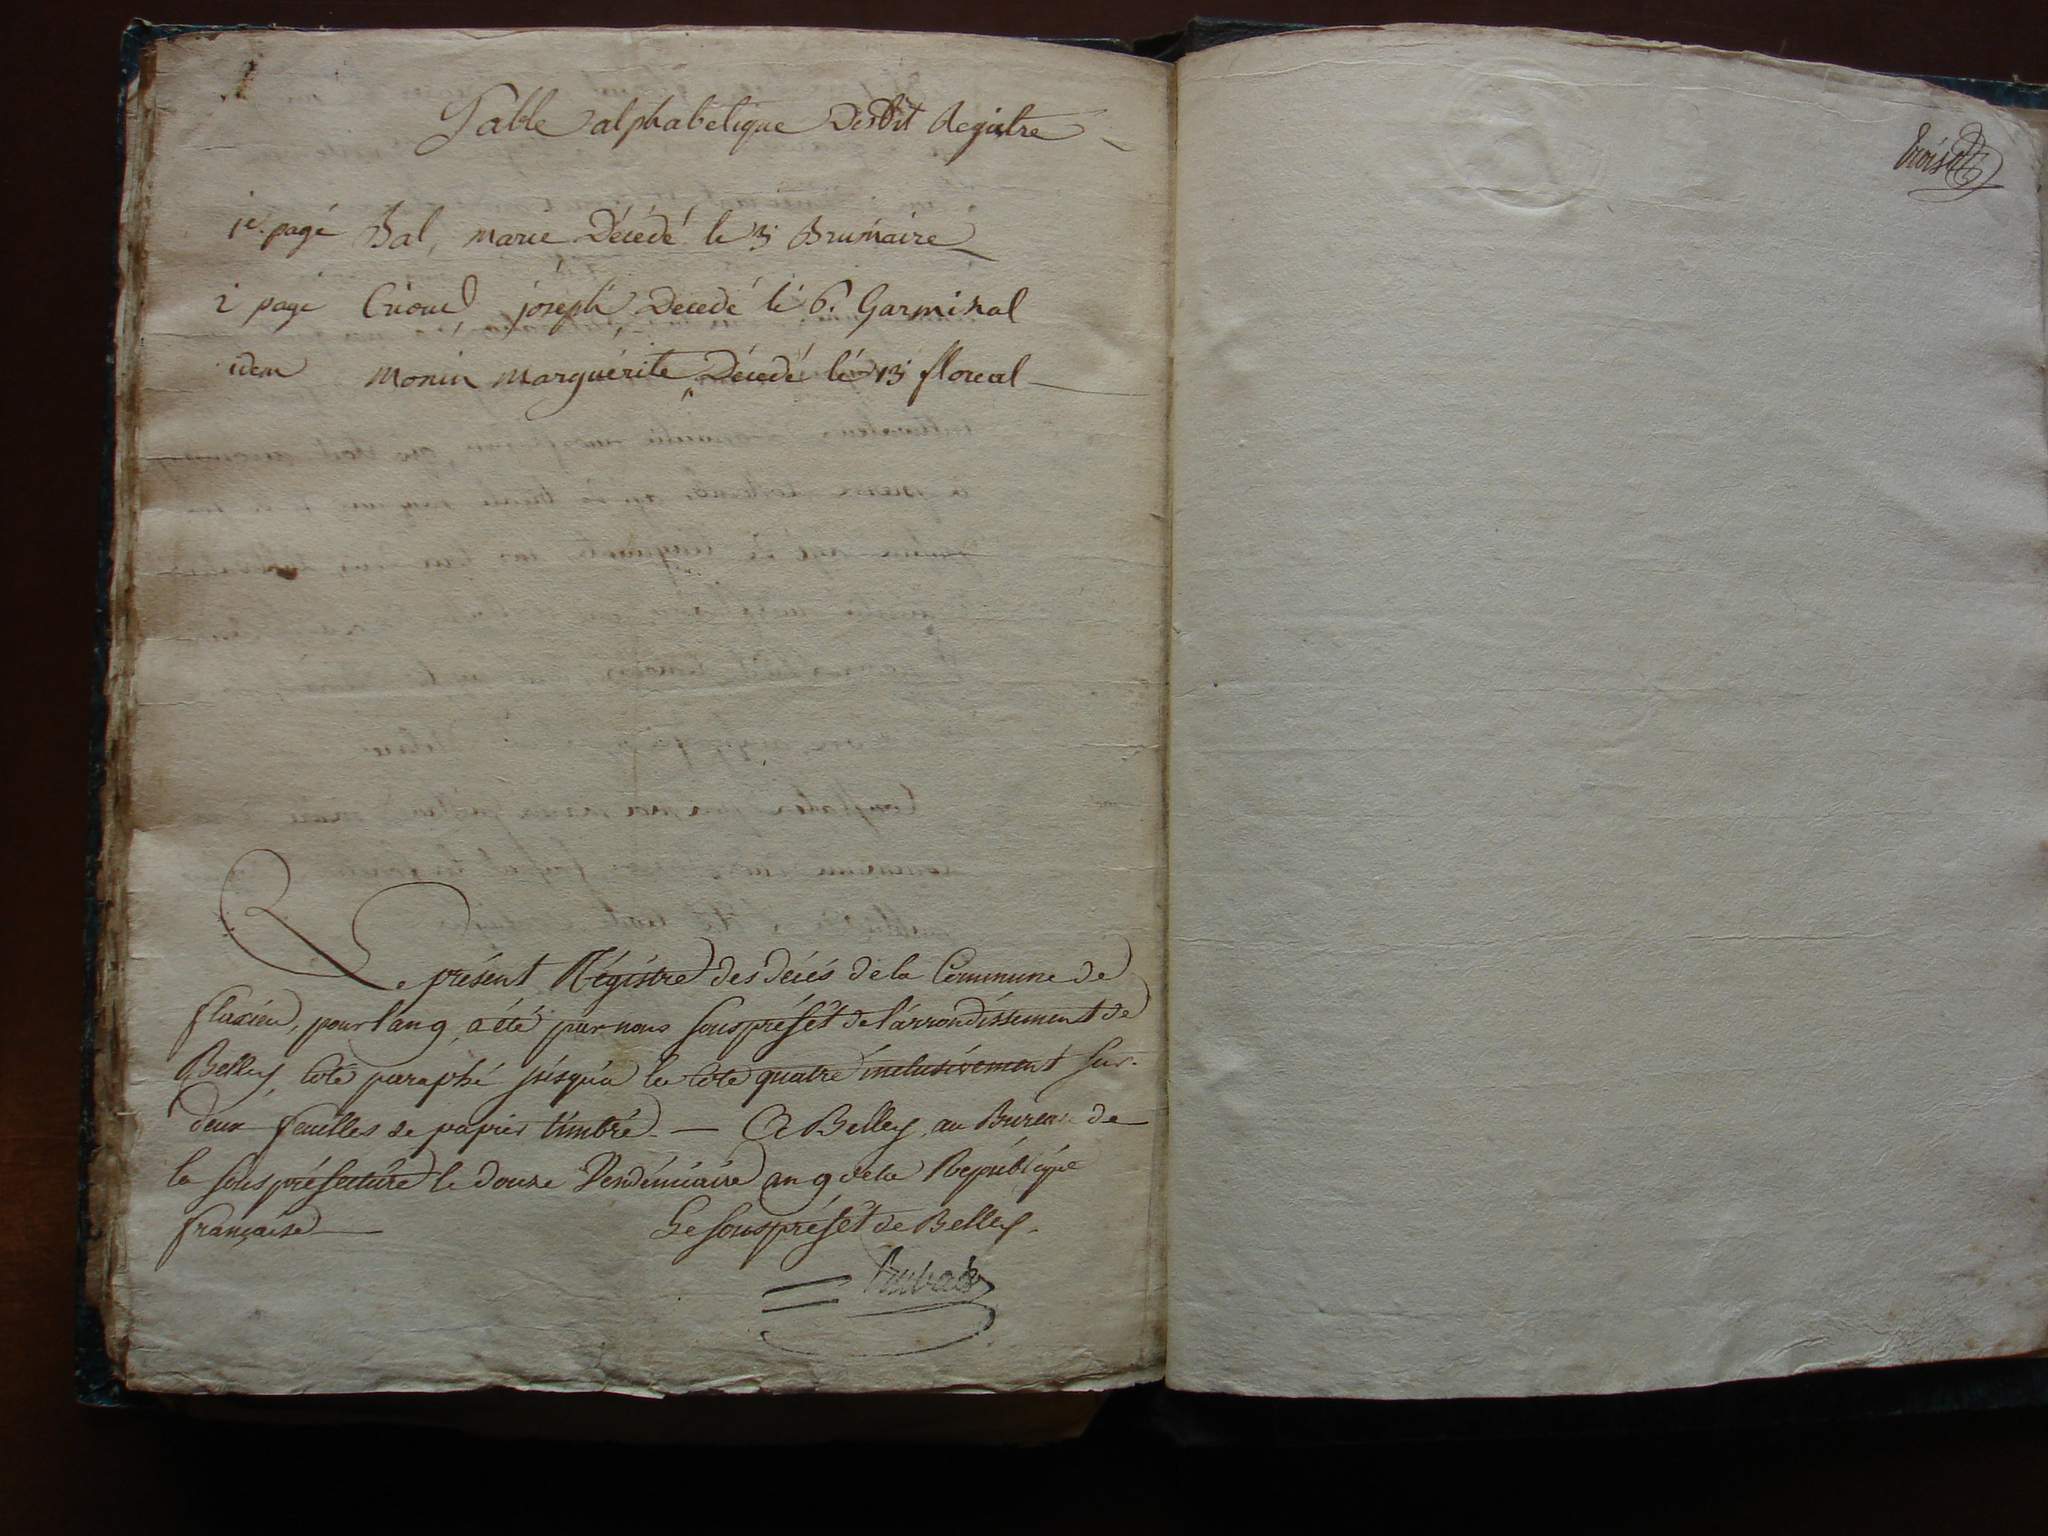 Table alphabetique Desdit Registre
1e. page Bal, marie Décédé le 3 Brumaire
2 page joseph Decedé le 6. Garminal
idem monin marguérite Décedé lé 13 floreal
Le présent Régistre des décés de la Commune de
flaxieu, pour l'an 9, a été par nous sous préfét de l'arrondissement de
Belley, coté paraphé jusqu'a la cote quatre inclusivement sur
deux feuilles de papier timbré. — A Belley, au Bureau de
la sous préfecture le douze Vendémiaire an 9 de la République
française
Le sous préfét de Belley.
trois